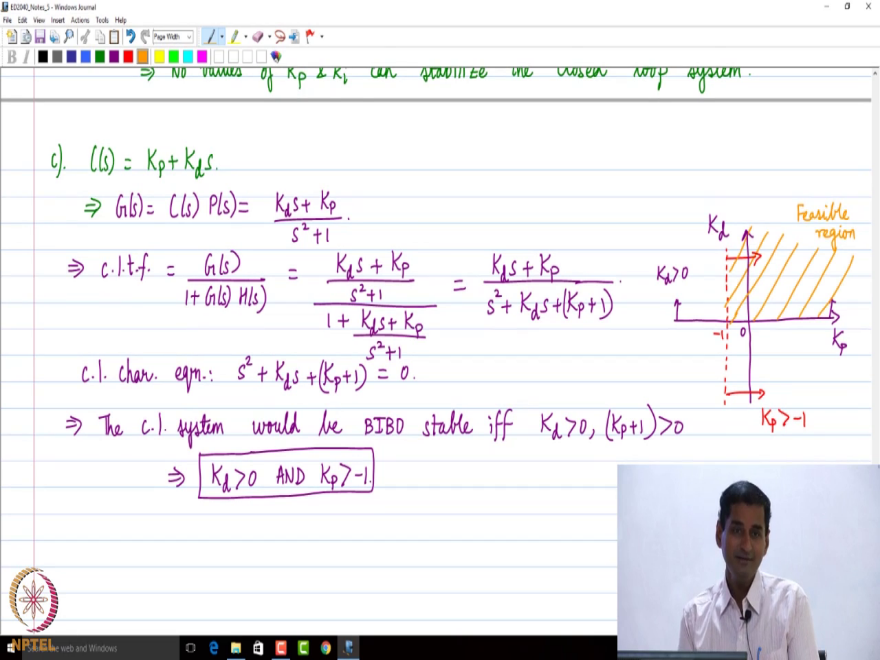 ED2040_Notes_5 - Windows Journal
File Edit View Insert Actions Tools Help
Page Width
B I
⇒ No values of Kp & Ki can stabilize the closed loop system.
c). C(s) = Kp + Kds.
⇒ G(s) = C(s) P(s) = (Kds + Kp)/(s²+1).
⇒ c.l.t.f. = G(s)/(1 + G(s) H(s)) = ((Kds + Kp)/(s²+1))/(1 + (Kds + Kp)/(s²+1)) = (Kds + Kp)/(s² + Kds + (Kp+1)).
c.l. char. eqn.: s² + Kds + (Kp+1) = 0.
⇒ The c.l. system would be BIBO stable iff Kd>0, (Kp+1)>0
⇒ Kd>0 AND Kp>-1.
Feasible
region
Kd
Kd>0
-1
0
Kp
Kp>-1
NPTEL
the web and Windows